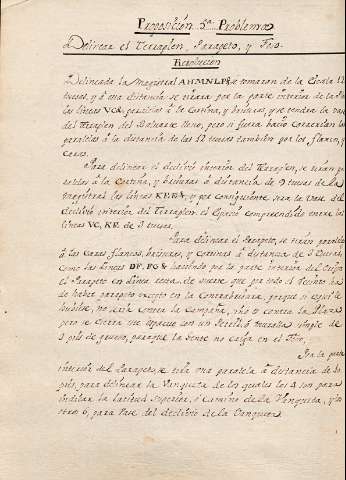 Proposición 5ª Problema
Delinear el Terraplen, Parapeto, y Foso.
Resolucion
Delineada la Magistral AHMNLP se tomaran de la Escala 12
tuesas, y á esta distancia se tirara por la parte interior de la
las lineas VC&, paralelas á la Cortina, y y se tendra la vasa
del Terraplen del Baluarte Vacio, pero si fuera haran
paralelas á la distancia de las 12 tuesas tambien por los flancos, y
caras.
Para delinear el declivio interior del Terraplen, se tiran pa
ralelas á la Cortina, y á distancia de 9 tuesas de la
Magistral las lineas KE&, y por consiguiente sera la vasa del
declivio interior del Terraplen el espacio comprendido entre las
lineas VC, KE de 3 tuesas.
Para delinear el Parapeto, se tiran paralelas
á las caras, flancos, y cortinas á distancia de 3
como las lineas DF, FG& haciendo por la parte interior del
el Parapeto en linea recta, de suerte que por todo el Recinto ha
de haber parapeto excepto en la
no contra la Campaña, sino contra la Plaza
pero se cierra ese espacio con un ó muralla simple de
3 pies de grueso, para que la gente no caiga en el Foso.
Por la parte
interior del Parapeto, se tira una paralela á distancia de
pies, para delinear la Vanqueta de los quales los 4 son para
la Superior, ó camino de la Vanqueta, y los
otros 6, para Vase del declivio de la Vanqueta